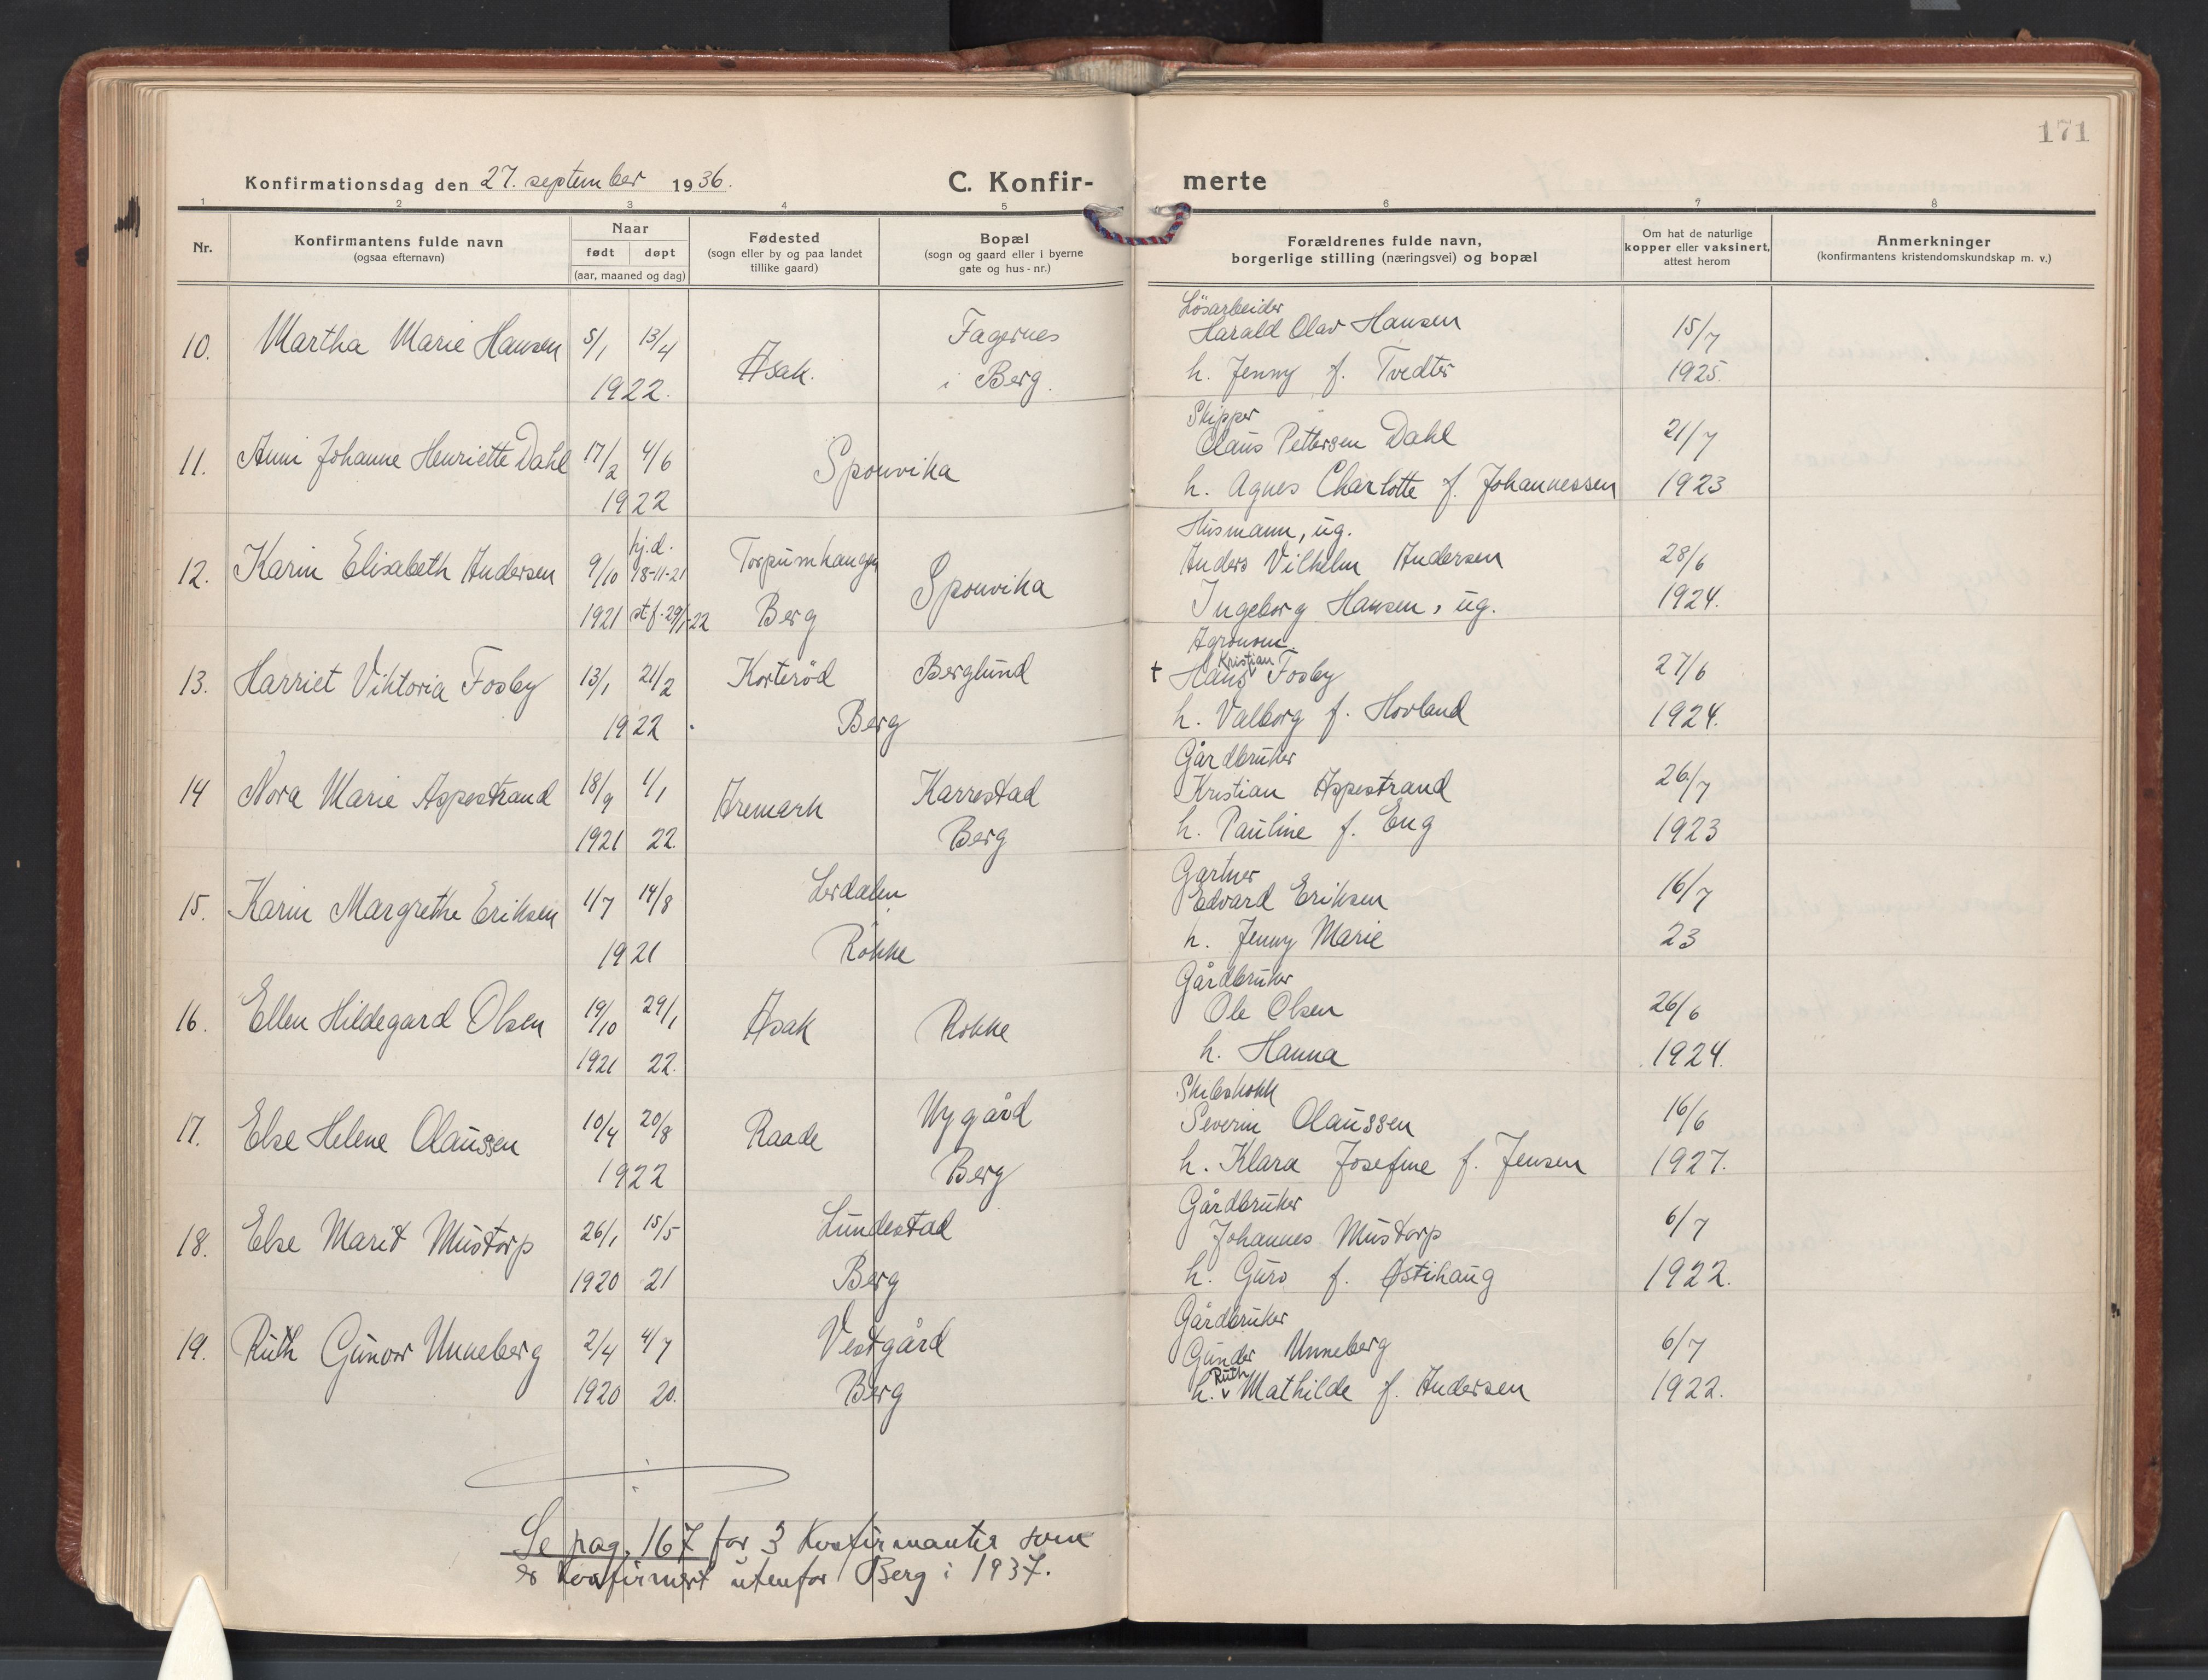 171
Konfirmationsdag den 27. september 1936.
C. Konfir- merte
1 2 3 4 5 6 7 8
Nr.
Konfirmantens fulde navn
(ogsaa efternavn)
Naar
født døpt
(aar, maaned og dag)
Fødested
(sogn eller by og paa landet
tillike gaard)
Bopæl
(sogn og gaard eller i byerne
gate og hus-nr.)
Forældrenes fulde navn,
borgerlige stilling (næringsvei) og bopæl
Om hat de naturlige
kopper eller vaksinert,
attest herom
Anmerkninger
(konfirmantens kristendomskundskap m. v.)
Løsarbeider
10. Martha Marie Hansen 5/1 13/4 Asak. Fagernes Harald Olav Hansen 15/7
1922. i Berg. h. Jenny f. Tvedter 1925.
Skipper
11. Anni Johanne Henriette Dahl 17/2 4/6 Sponvika Claus Pettersen Dahl 21/7
1922 h. Agnes Charlotte f. Johannessen 1923
Husmann, ug.
12. Karin Elisabeth Andersen 9/10 hj.d. 18-11-21 Torpumhaugen Sponvika Anders Vilhelm Andersen 28/6
1921 st.f. 29/1-22 Berg Ingeborg Hansen, ug. 1924.
Agronom
13. Harriet Viktoria Fosby 13/1 21/2 Korterød Berglund † Hans Kristian Fosby 27/6
1922. Berg h. Valborg f. Hovland 1924.
Gårdbruker
14 Nora Marie Aspestrand 18/9 1/1 Aremark Karrestad Kristian Aspestrand 26/7
1921 22. Berg h. Pauline f. Eng 1923
Gartner
15. Karin Margrethe Eriksen 1/7 14/8 Lerdalen Edvard Eriksen 16/7
1921 Rokke h. Jenny Marie 23
Gårdbruker
16. Ellen Hildegard Olsen 19/10 29/1 Asak Rokke Ole Olsen 26/6
1921 22. h. Hanna 1924.
Skibskokk
17. Else Helene Olaussen 10/4 20/8 Raade Nygård Severin Olaussen 16/6
1922 Berg h. Klara Josefine f. Jensen 1927.
Gårdbruker
18. Else Marit Mustorp 26/1 15/5 Lundestad Johannes Mustorp 6/7
1920 21 Berg h. Guro f. Østihaug 1922.
Gårdbruker
19. Ruth Gunvor Unneberg 2/4 4/7 Vestgård Gunder Unneberg 6/7
1920 20. Berg h. Ruth Mathilde f. Andersen 1922.
Se pag. 167 for 3 Konfirmanter som
er konfirmert utenfor Berg i 1937.